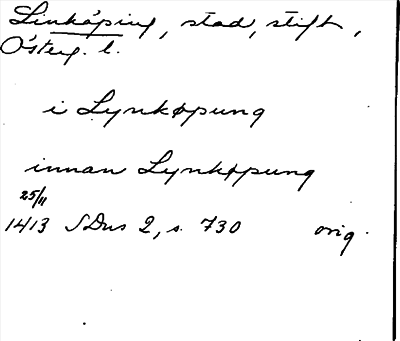 Linköping, stad, stift,
Österg. l.
i Lynkøpung
innan Lynkøpung
25/11
1413 SDns 2, s. 730 orig.